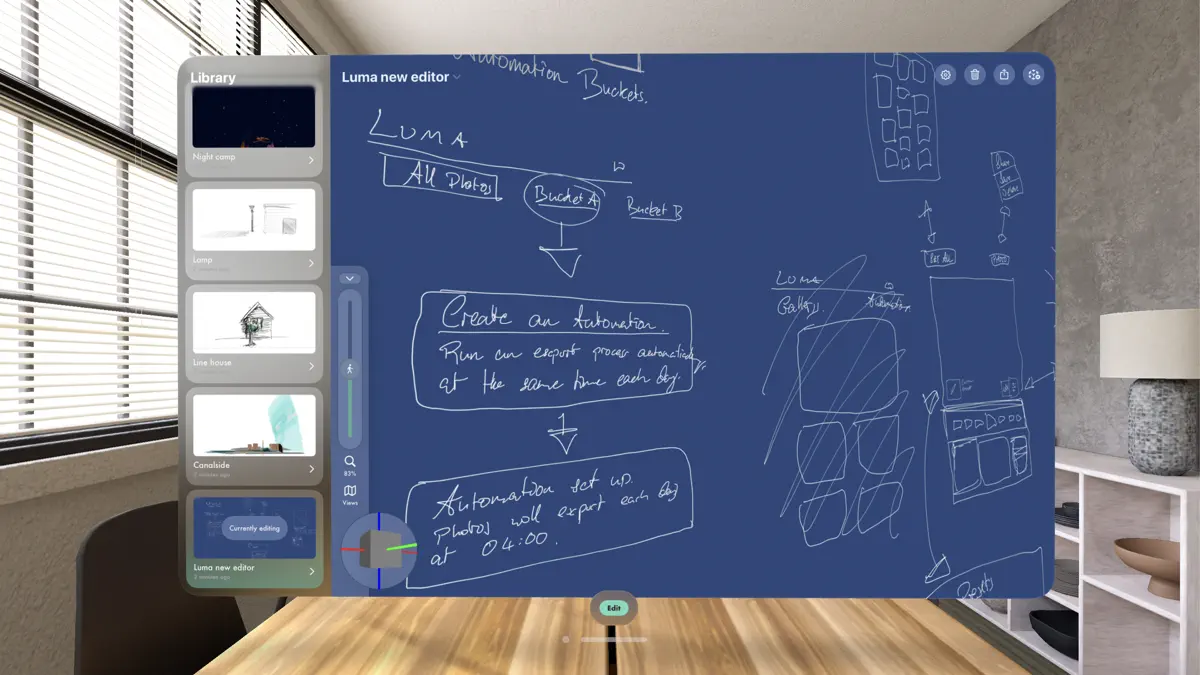 Library
Night camp
Lamp
2 minutes ago
Line house
Canalside
2 minutes ago
Currently editing
Luma new editor
2 minutes ago
Luma new editor
83%
Views
Edit
Automation
Buckets.
LUMA
All Photos
Bucket A
Bucket B
Create an Automation.
Run an export process automatically
at the same time each day.
Automation set up.
Photos will export each day
at 04:00.
LUMA
Gallery.
Automation
Presets